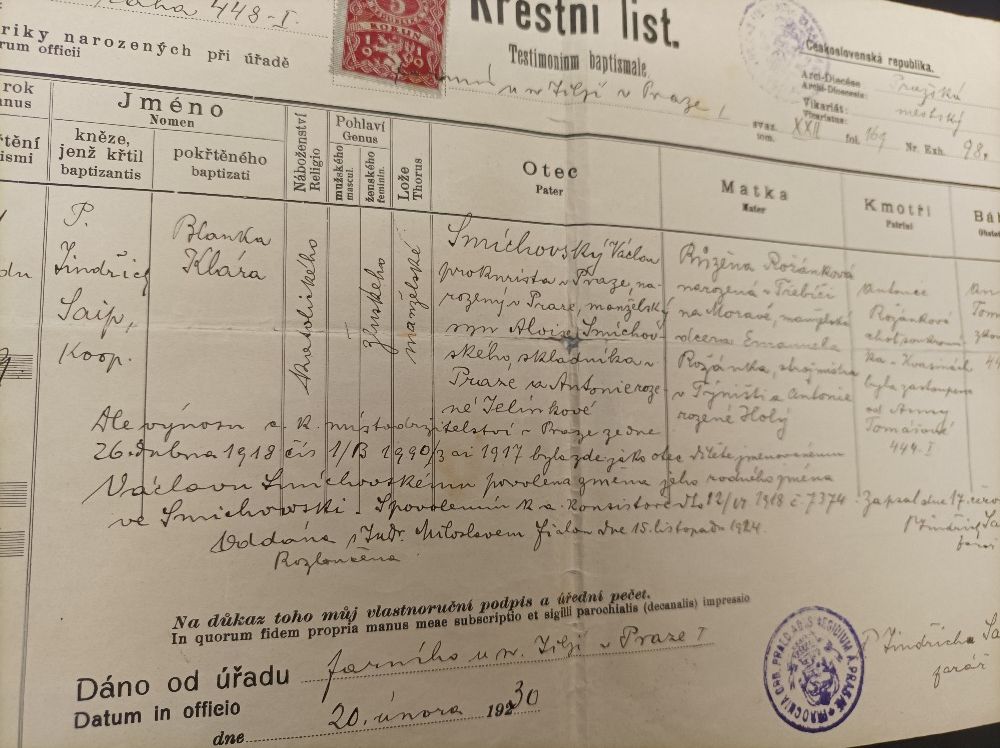 Praha 448-I.
Křestní list.
Testimonium baptismale.
Československá republika.
řiky narozených při úřadě
orum officii
u sv. Jiljí v Praze I
Arci-Diecése
Archi-Dioecesis
Pražská
Vikariát:
Vicariatus:
městský
svaz.
tom.
XXII
fol. 169
Nr. Exh. 98.
rok
annus
Jméno
Nomen
kněze,
jenž křtil
baptizantis
pokřtěného
baptizati
Náboženství
Religio
Pohlaví
Genus
mužského
mascul.
ženského
feminin.
Lože
Thorus
Otec
Pater
Matka
Mater
Kmotři
Patrini
P.
Jindřich
Saip,
Koop.
Blanka
Klára
Katolického
ženského
manželské
Smíchovský Václav
prokurista v Praze, na-
rozený v Praze, manželský
syn Aloise Smíchov-
ského, skladníka v
Praze a Antonie roze-
né Jelínkové
Růžena Rožánková
narozená v Třebíči
na Moravě, manželská
dcera Emanuela
Rožánka,
v Týništi a Antonie
rozené Holý
Antonie
Rožánková
byla zastoupena
od Anny
Tomášové
444. I
Dle výnosu c. k. místodržitelství v Praze ze dne
26. dubna 1918 čís 1/B 1990/3 ai 1917 byla zde jako otec dítěte jmenovanému
Václavu Smíchovskému povolena změna jeho rodného jména
ve Smichowski. S povolením k. a. konsistoře dto 12/VI 1918 č. 7374. Zapsal dne 17. čer
P. Jindřich
farář
Oddána s Judr. Miloslavem Fialou dne 15. listopadu 1924.
Rozloučena
Na důkaz toho můj vlastnoruční podpis a úřední pečet.
In quorum fidem propria manus meae subscriptio et sigilli parochialis (decanalis) impressio
Dáno od úřadu farního u sv. Jiljí v Praze I
Datum in officio
dne 20. února 1930
P Jindřich Sa
farář